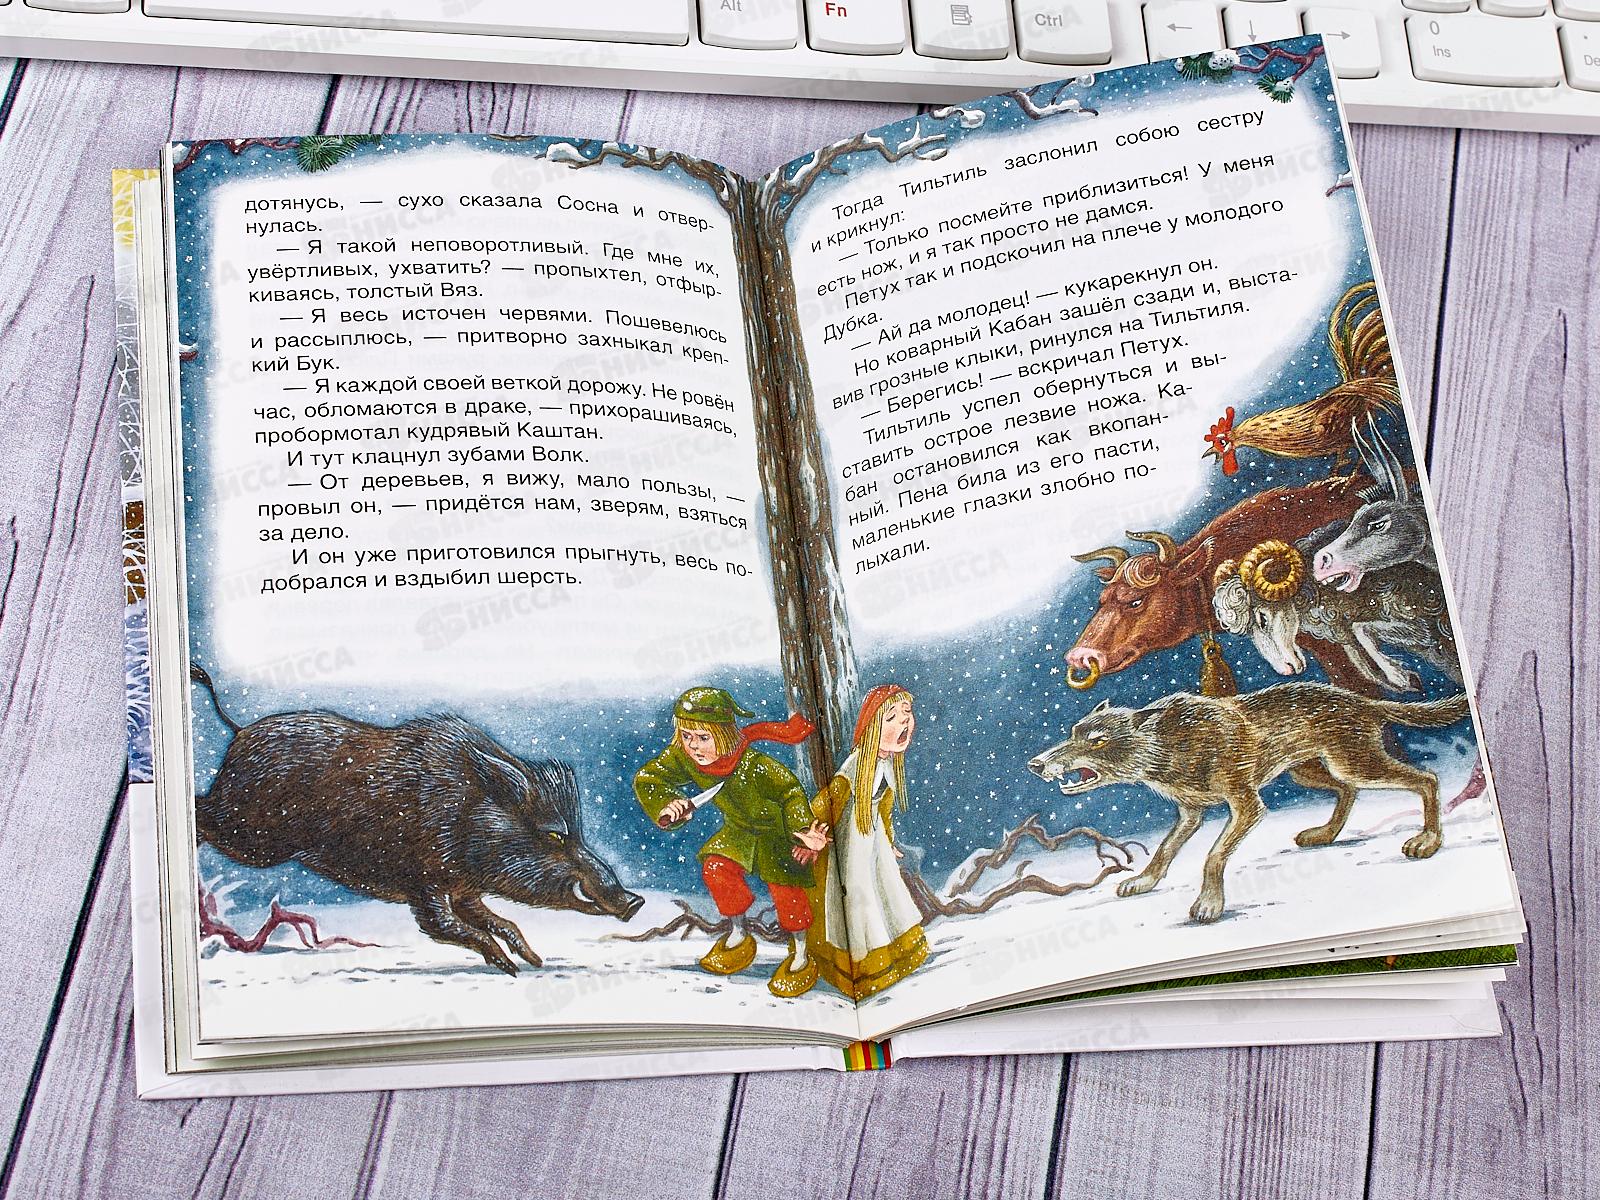 Alt
Fn
Ctrl
←
↓
→
0
Ins
.
De
дотянусь, — сухо сказала Сосна и отвер-
нулась.
— Я такой неповоротливый. Где мне их,
увёртливых, ухватить? — пропыхтел, отфыр-
киваясь, толстый Вяз.
— Я весь источен червями. Пошевелюсь
и рассыплюсь, — притворно захныкал креп-
кий Бук.
— Я каждой своей веткой дорожу. Не ровён
час, обломаются в драке, — прихорашиваясь,
пробормотал кудрявый Каштан.
И тут клацнул зубами Волк.
— От деревьев, я вижу, мало пользы, —
провыл он, — придётся нам, зверям, взяться
за дело.
И он уже приготовился прыгнуть, весь по-
добрался и вздыбил шерсть.
Тогда Тильтиль заслонил собою сестру
и крикнул:
— Только посмейте приблизиться! У меня
есть нож, и я так просто не дамся.
Петух так и подскочил на плече у молодого
Дубка.
— Ай да молодец! — кукарекнул он.
Но коварный Кабан зашёл сзади и, выста-
вив грозные клыки, ринулся на Тильтиля.
— Берегись! — вскричал Петух.
Тильтиль успел обернуться и вы-
ставить острое лезвие ножа. Ка-
бан остановился как вкопан-
ный. Пена била из его пасти,
маленькие глазки злобно по-
лыхали.
НИССА